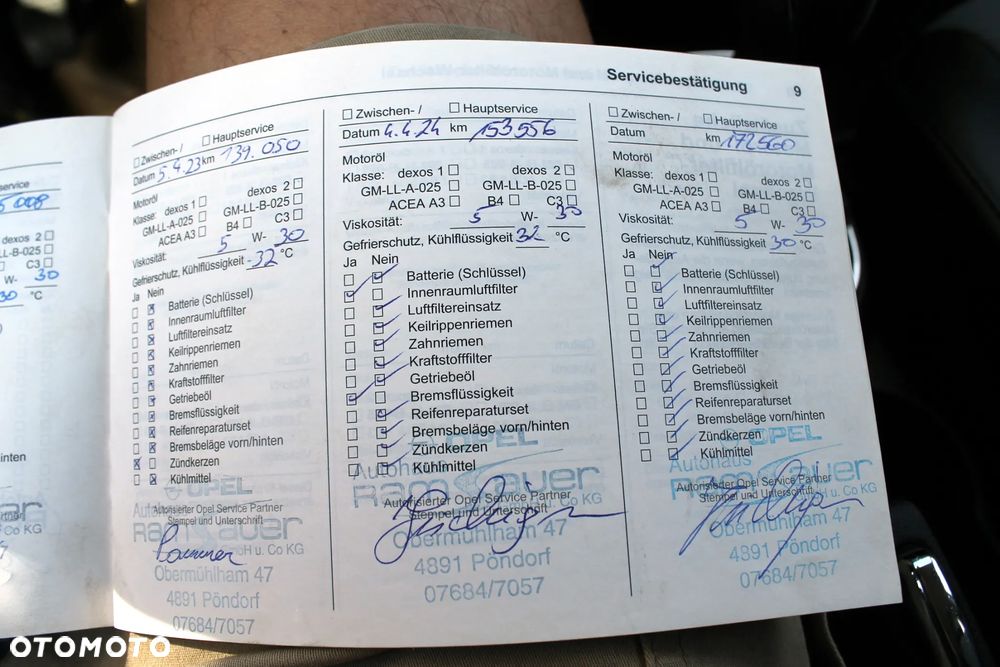 Servicebestätigung 9
ervice
5008
dexos 2
LL-B-025
C3
W- 30
30 °C
inten
Co KG
Zwischen- / Hauptservice
Datum 5.4.23 km 139.050
Motoröl
Klasse: dexos 1 dexos 2
GM-LL-A-025 GM-LL-B-025
ACEA A3 B4 C3
Viskosität: 5 W- 30
Gefrierschutz, Kühlflüssigkeit -32 °C
Ja Nein
Batterie (Schlüssel)
Innenraumluftfilter
Luftfiltereinsatz
Keilrippenriemen
Zahnriemen
Kraftstofffilter
Getriebeöl
Bremsflüssigkeit
Reifenreparaturset
Bremsbeläge vorn/hinten
Zündkerzen
Kühlmittel
OPEL
Autorisierter Opel Service Partner
Stempel und Unterschrift
H u. Co KG
Obermühlham 47
4891 Pöndorf
07684/7057
Zwischen- / Hauptservice
Datum 4.4.24 km 153556
Motoröl
Klasse: dexos 1 dexos 2
GM-LL-A-025 GM-LL-B-025
ACEA A3 B4 C3
Viskosität: 5 W- 30
Gefrierschutz, Kühlflüssigkeit 32 °C
Ja Nein
Batterie (Schlüssel)
Innenraumluftfilter
Luftfiltereinsatz
Keilrippenriemen
Zahnriemen
Kraftstofffilter
Getriebeöl
Bremsflüssigkeit
Reifenreparaturset
Bremsbeläge vorn/hinten
Zündkerzen
Kühlmittel
OPEL
Autohaus
Autorisierter Opel Service Partner
Stempel und Unterschrift
Co KG
Obermühlham 47
4891 Pöndorf
07684/7057
Zwischen- / Hauptservice
Datum km 172560
Motoröl
Klasse: dexos 1 dexos 2
GM-LL-A-025 GM-LL-B-025
ACEA A3 B4 C3
Viskosität: 5 W- 30
Gefrierschutz, Kühlflüssigkeit 30 °C
Ja Nein
Batterie (Schlüssel)
Innenraumluftfilter
Luftfiltereinsatz
Keilrippenriemen
Zahnriemen
Kraftstofffilter
Getriebeöl
Bremsflüssigkeit
Reifenreparaturset
Bremsbeläge vorn/hinten
Zündkerzen
Kühlmittel
OPEL
Autohaus
Autorisierter Opel Service Partner
Stempel und Unterschrift
u. Co KG
Obermühlham 47
4891 Pöndorf
07684/7057
OTOMOTO